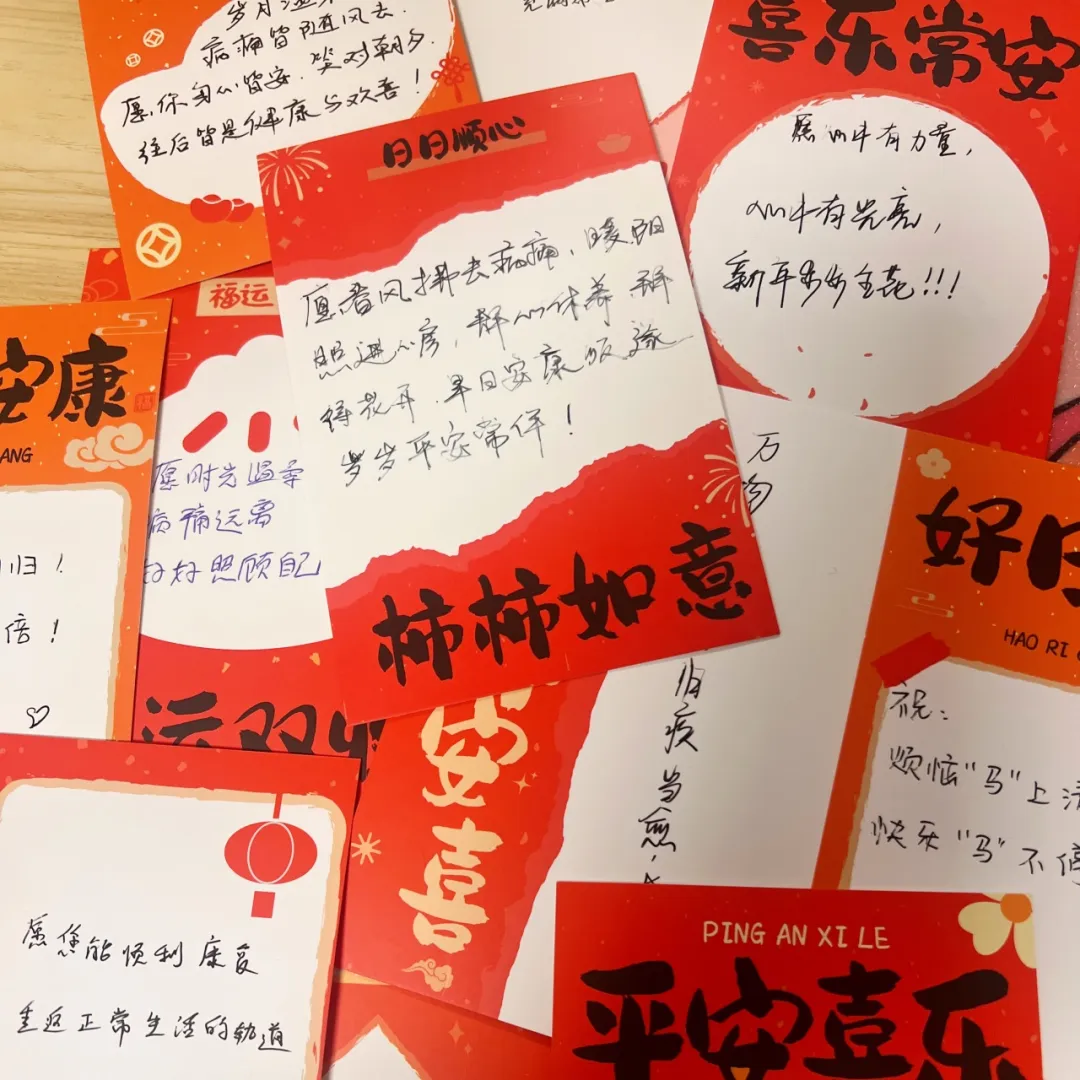 病痛皆随风去.
愿你身心皆安.笑对朝夕.
往后皆是健康与欢喜！
日日顺心
愿春风拂去病痛，暖阳
照进心房，静心休养.
得花开.早日安康
岁岁平安常伴！
柿柿如意
喜乐常安
愿心中有力量，
心中有光亮，
新年步步生花!!!
福运
愿时光温柔
病痛远离
好好照顾自己
安康
ANG
归！
倍！
万物
疾当愈.
安喜
HAO RI
祝：
烦恼"马"上
快乐"马"不停
愿您能顺利康复
重返正常生活的轨道
PING AN XI LE
平安喜乐